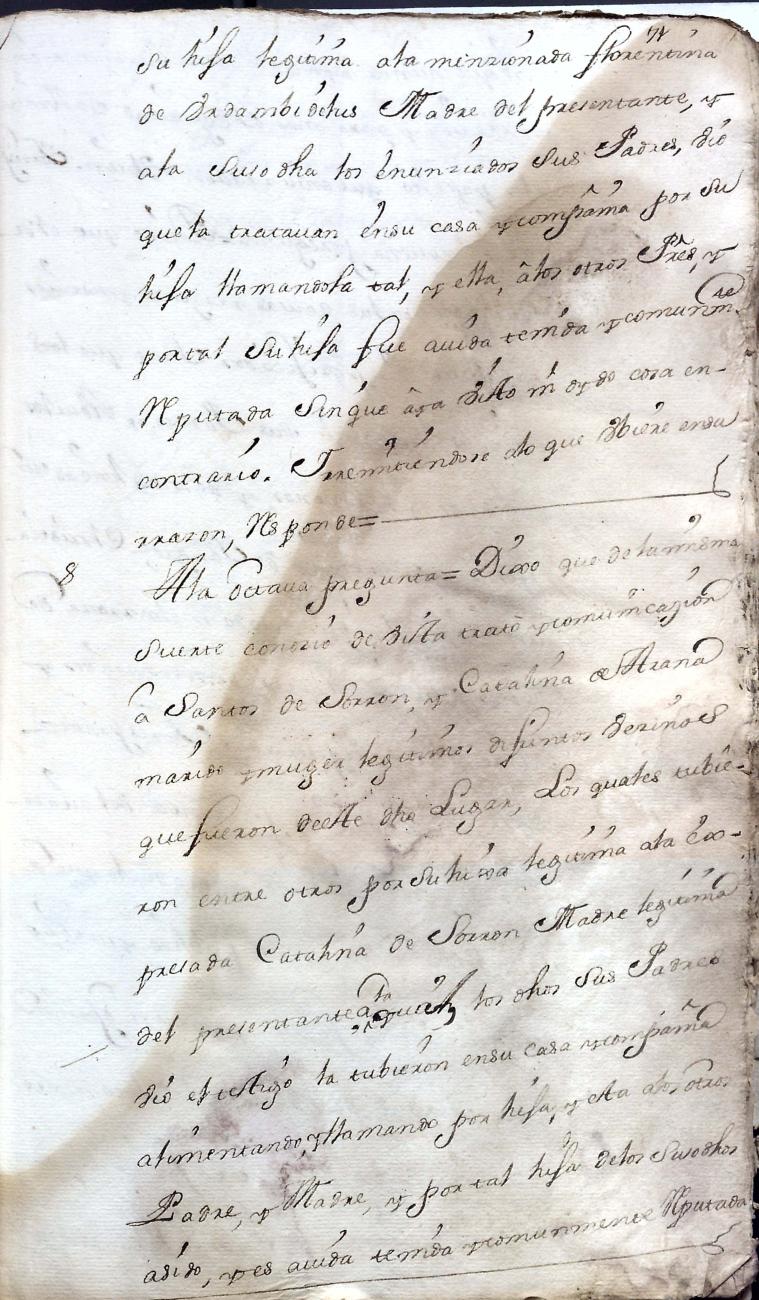 su hija legitima ala menzionada florentina
de Madre del presentante, y
ala Susodha los enunziados sus Padres, bio
que la tratauan ensu casa y compañia por su
hija llamandola tal, y ella, â los otros Pres, y
por tal su hija fue auida tenida y comunmte
Reputada sin que aya bisto ni oydo cosa en
contrario. Y rremitiendose alo que Ubiere en su
rrazon, Responde=
8 Ala octaua pregunta= Dixo que dela misma
suerte conozio de bista trato y comunicazion
a Santos de Sorron, y Catalina de Arana
marido y muger legitimos difuntos bezinos
que fueron deeste dho Lugar, Los quales tubie-
ron entre otros por su hixa legitima ala ex-
presada Catalina de Sorron Madre legitima
del presentante a la qual los dhos sus Padres
bio el testigo la tubieron en su casa y compañia
alimentando, y llamando por hija, y esta alos otros
Padre, y Madre, y por tal hija delos Susodhos
asido, y es auida tenida y comunmente Reputada